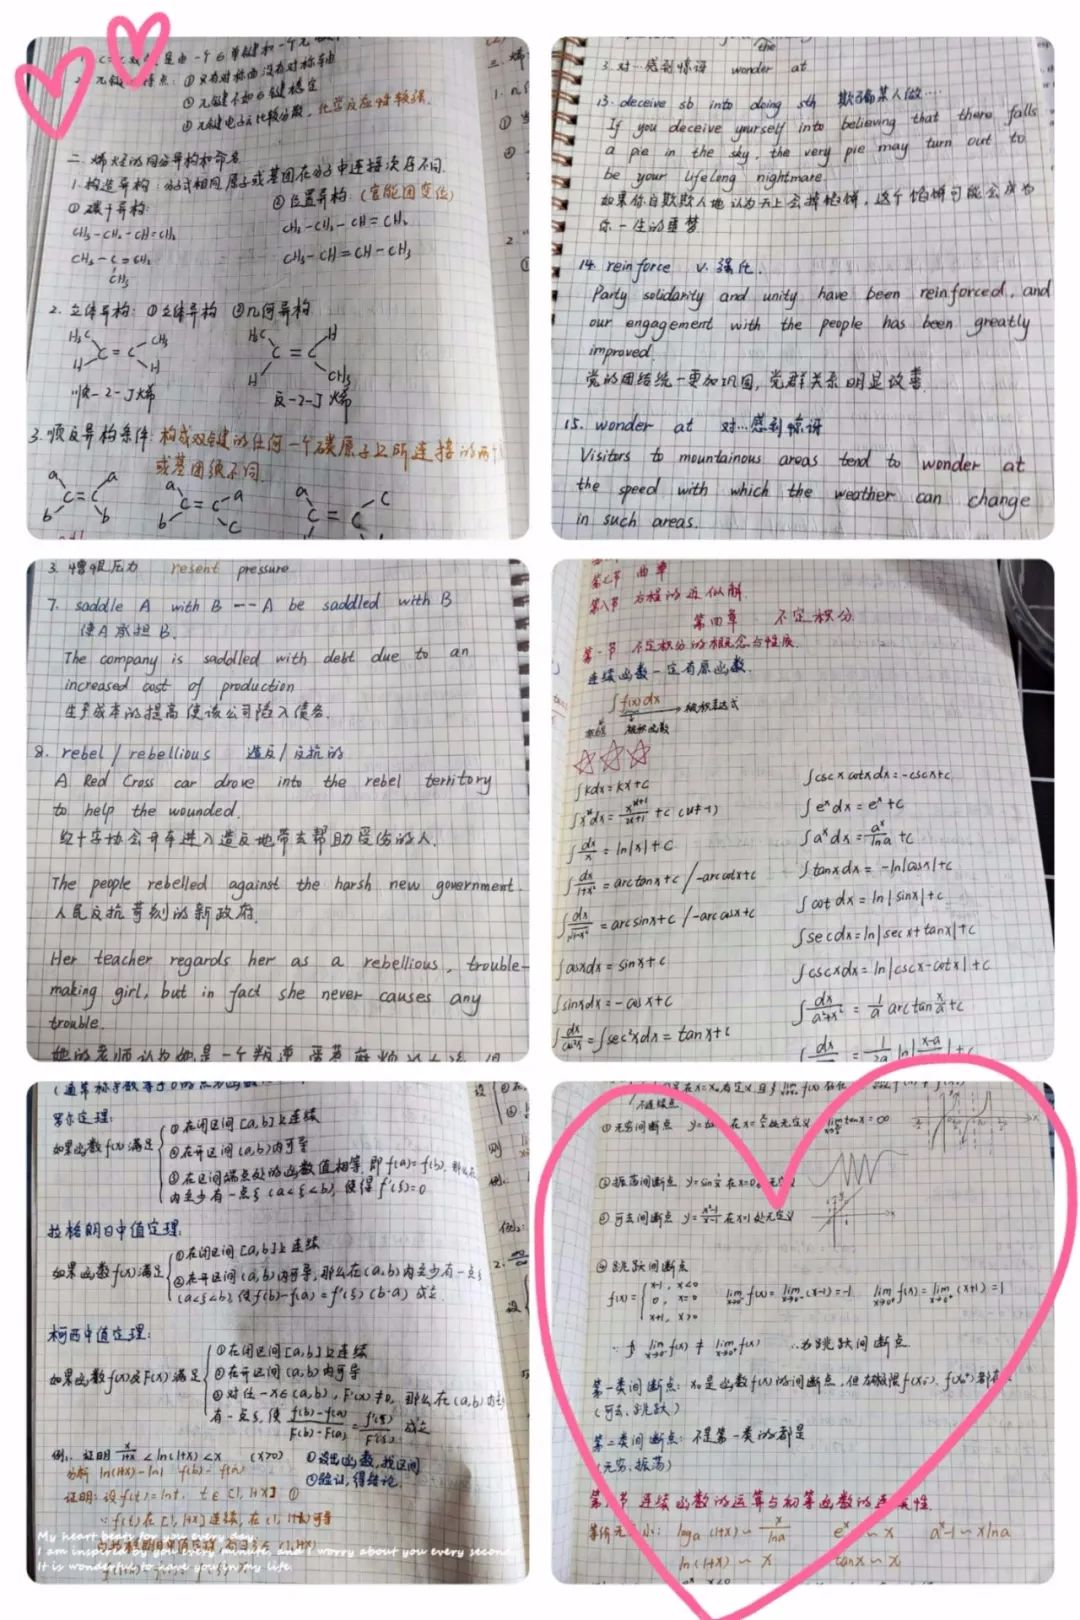 ② 只有对称面没有对称轴
③ π键电子云比较分散，化学反应性较强.
二. 烯烃的同分异构和命名
1. 构造异构: 分子式相同,原子或基团在分子中连接次序不同.
① 碳干异构:
② 位置异构: (官能团变位)
CH₃-CH₂-CH=CH₂
CH₃-C=CH₂
CH₃
CH₃-CH₂-CH=CH₂
CH₃-CH=CH-CH₃
2. 立体异构: ① 立体异构 ② 几何异构
H₃C CH₃
C=C
H H
顺-2-丁烯
H₃C H
C=C
H CH₃
反-2-丁烯
3. 顺反异构条件: 构成双键的任何一个碳原子上所连接的两个
或基团须不同.
a a
C=C
b b
a a
C=C
b c
C=C
the
3. 对…感到惊讶 wonder at
13. deceive sb into doing sth 欺骗某人做….
If you deceive yourself into believing that there falls
a pie in the sky, the very pie may turn out to
be your lifelong nightmare.
如果你自欺欺人地认为天上会掉馅饼, 这个馅饼可能会成为
你一生的噩梦
14. reinforce v. 强化.
Party solidarity and unity have been reinforced, and
our engagement with the people has been greatly
improved.
党的团结统一更加巩固, 党群关系明显改善.
15. wonder at 对…感到惊讶
Visitors to mountainous areas tend to wonder at
the speed with which the weather can change
in such areas.
resent pressure
7. saddle A with B -- A be saddled with B
使A承担B.
The company is saddled with debt due to an
increased cost of production
生产成本的提高使该公司陷入债务.
8. rebel / rebellious 造反/反抗的
A Red Cross car drove into the rebel territory
to help the wounded.
红十字协会开车进入造反地带去帮助受伤的人.
The people rebelled against the harsh new government.
人民反抗苛刻的新政府.
Her teacher regards her as a rebellious, trouble-
making girl, but in fact she never causes any
trouble.
她的老师认为她是一个叛逆
第七节 曲率
第八节 方程的近似解
第四章 不定积分
第一节 不定积分的概念与性质.
连续函数一定有原函数.
∫f(x)dx → 被积表达式
被积函数
∫kdx = kx+c
∫xᵘdx = xᵘ⁺¹/(u+1) + c (u≠-1)
∫dx/x = ln|x|+C
∫dx/(1+x²) = arctanx+c / -arccotx+c
∫dx/√(1-x²) = arcsinx+c / -arccosx+c
∫cosxdx = sinx+c
∫sinxdx = -cosx+c
∫dx/cos²x = ∫sec²xdx = tanx+c
∫cscxcotxdx = -cscx+c
∫eˣdx = eˣ+c
∫aˣdx = aˣ/lna +c
∫tanxdx = -ln|cosx|+c
∫cotdx = ln|sinx|+c
∫secdx = ln|secx+tanx|+c
∫cscxdx = ln|cscx-cotx|+c
∫dx/(a²+x²) = 1/a arctan x/a +c
罗尔定理:
如果函数f(x)满足
①在闭区间[a,b]上连续
②在开区间(a,b)内可导
③在区间端点处的函数值相等, 即f(a)=f(b), 那么在
内至少有一点ξ (a<ξ<b), 使得f'(ξ)=0
拉格朗日中值定理:
如果函数f(x)满足
①在闭区间[a,b]上连续
②在开区间(a,b)内可导, 那么在(a,b)内至少有一点ξ
(a<ξ<b), 使f(b)-f(a)=f'(ξ)(b-a) 成立.
柯西中值定理:
如果函数f(x)及F(x)满足
①在闭区间[a,b]上连续
②在开区间(a,b)内可导
③对任一x∈(a,b), F'(x)≠0, 那么在(a,b)内
有一点ξ, 使 (f(b)-f(a))/(F(b)-F(a)) = f'(ξ)/F'(ξ) 成立
例1. 证明 x/(1+x) < ln(1+x) < x (x>0)
分析 ln(1+x)-ln1 f(b)-f(a)
①设出函数, 找区间
②验证, 得结论.
证明: 设f(t)=lnt, t∈[1,1+x] ①
∵f(t)在[1,1+x]连续, 在(1,1+x)可导
My heart beats for you every day.
I am inspired by you every minute, and I worry about you every second.
It is wonderful to have you in my life.
①无穷间断点
②振荡间断点
③可去间断点 y=(x²-1)/(x-1) 在x=1处无定义
④跳跃间断点
f(x)= { x-1, x<0
0, x=0
x+1, x>0
(x-1)=-1
(x+1)=1
∴为跳跃间断点.
第一类间断点: x₀是函数f(x)的间断点, 但左极限f(x₀⁻), f(x₀⁺)都存
(可去、跳跃)
第二类间断点: 不是第一类的都是
(无穷、振荡)
连续函数的运算与初等函数的连续性
等价无穷小: logₐ(1+x) ~ x/lna eˣ-1 ~ x aˣ-1 ~ xlna
ln(1+x) ~ x tanx ~ x